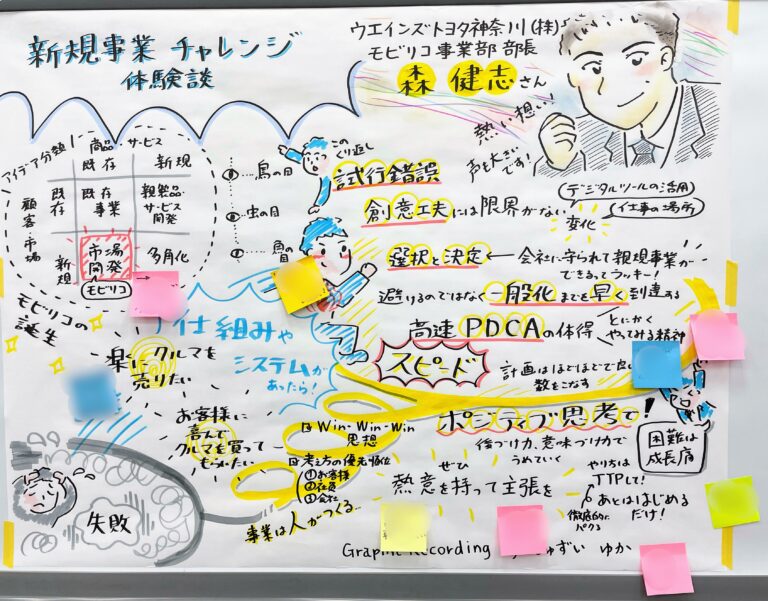 新規事業 チャレンジ
体験談
ウエインズトヨタ神奈川(株)
モビリコ事業部 部長
森 健志さん
熱い想い!
声を大きいです!
アイデア分類
商品・サービス
既存
新規
顧客・市場
既存
既存
事業
新製品・
サービス
開発
新規
市場
開発
多角化
モビリコ
モビリコの
誕生
鳥の目
虫の目
魚の目
このくり返し
試行錯誤
創意工夫には限界がない
デジタルツールの活用
仕事の場所
変化
選択と決定
会社に守られて新規事業が
できるってラッキー!
避けるのではなく一般化までを早く到達する
高速 PDCAの体得
とにかく
やってみる精神
スピード
計画はほどほどで良い
数をこなす
仕組みや
システムが
あったら!
楽にクルマを
売りたい
お客様に
喜んで
クルマを買って
もらいたい
Win-Win-Win
思想
考え方の優先順位
①お客様
②社員
③会社
事業は人がつくる…
ポジティブ思考で!
後づけ力、意味づけ力で
うめていく
困難は
成長痛
ぜひ
熱意を持って主張を
やり方は
TTPして!
あとははじめる
だけ!
徹底的に
パクる
失敗
Graphic Recording
ゆか